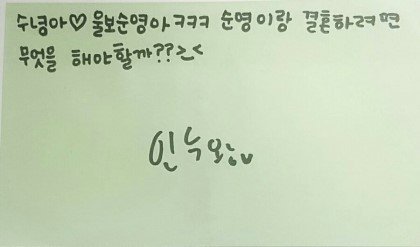 수녕아♡ 울보순영아ㅋㅋㅋ 순영이랑 결혼하려면
무엇을 해야할까??>_<